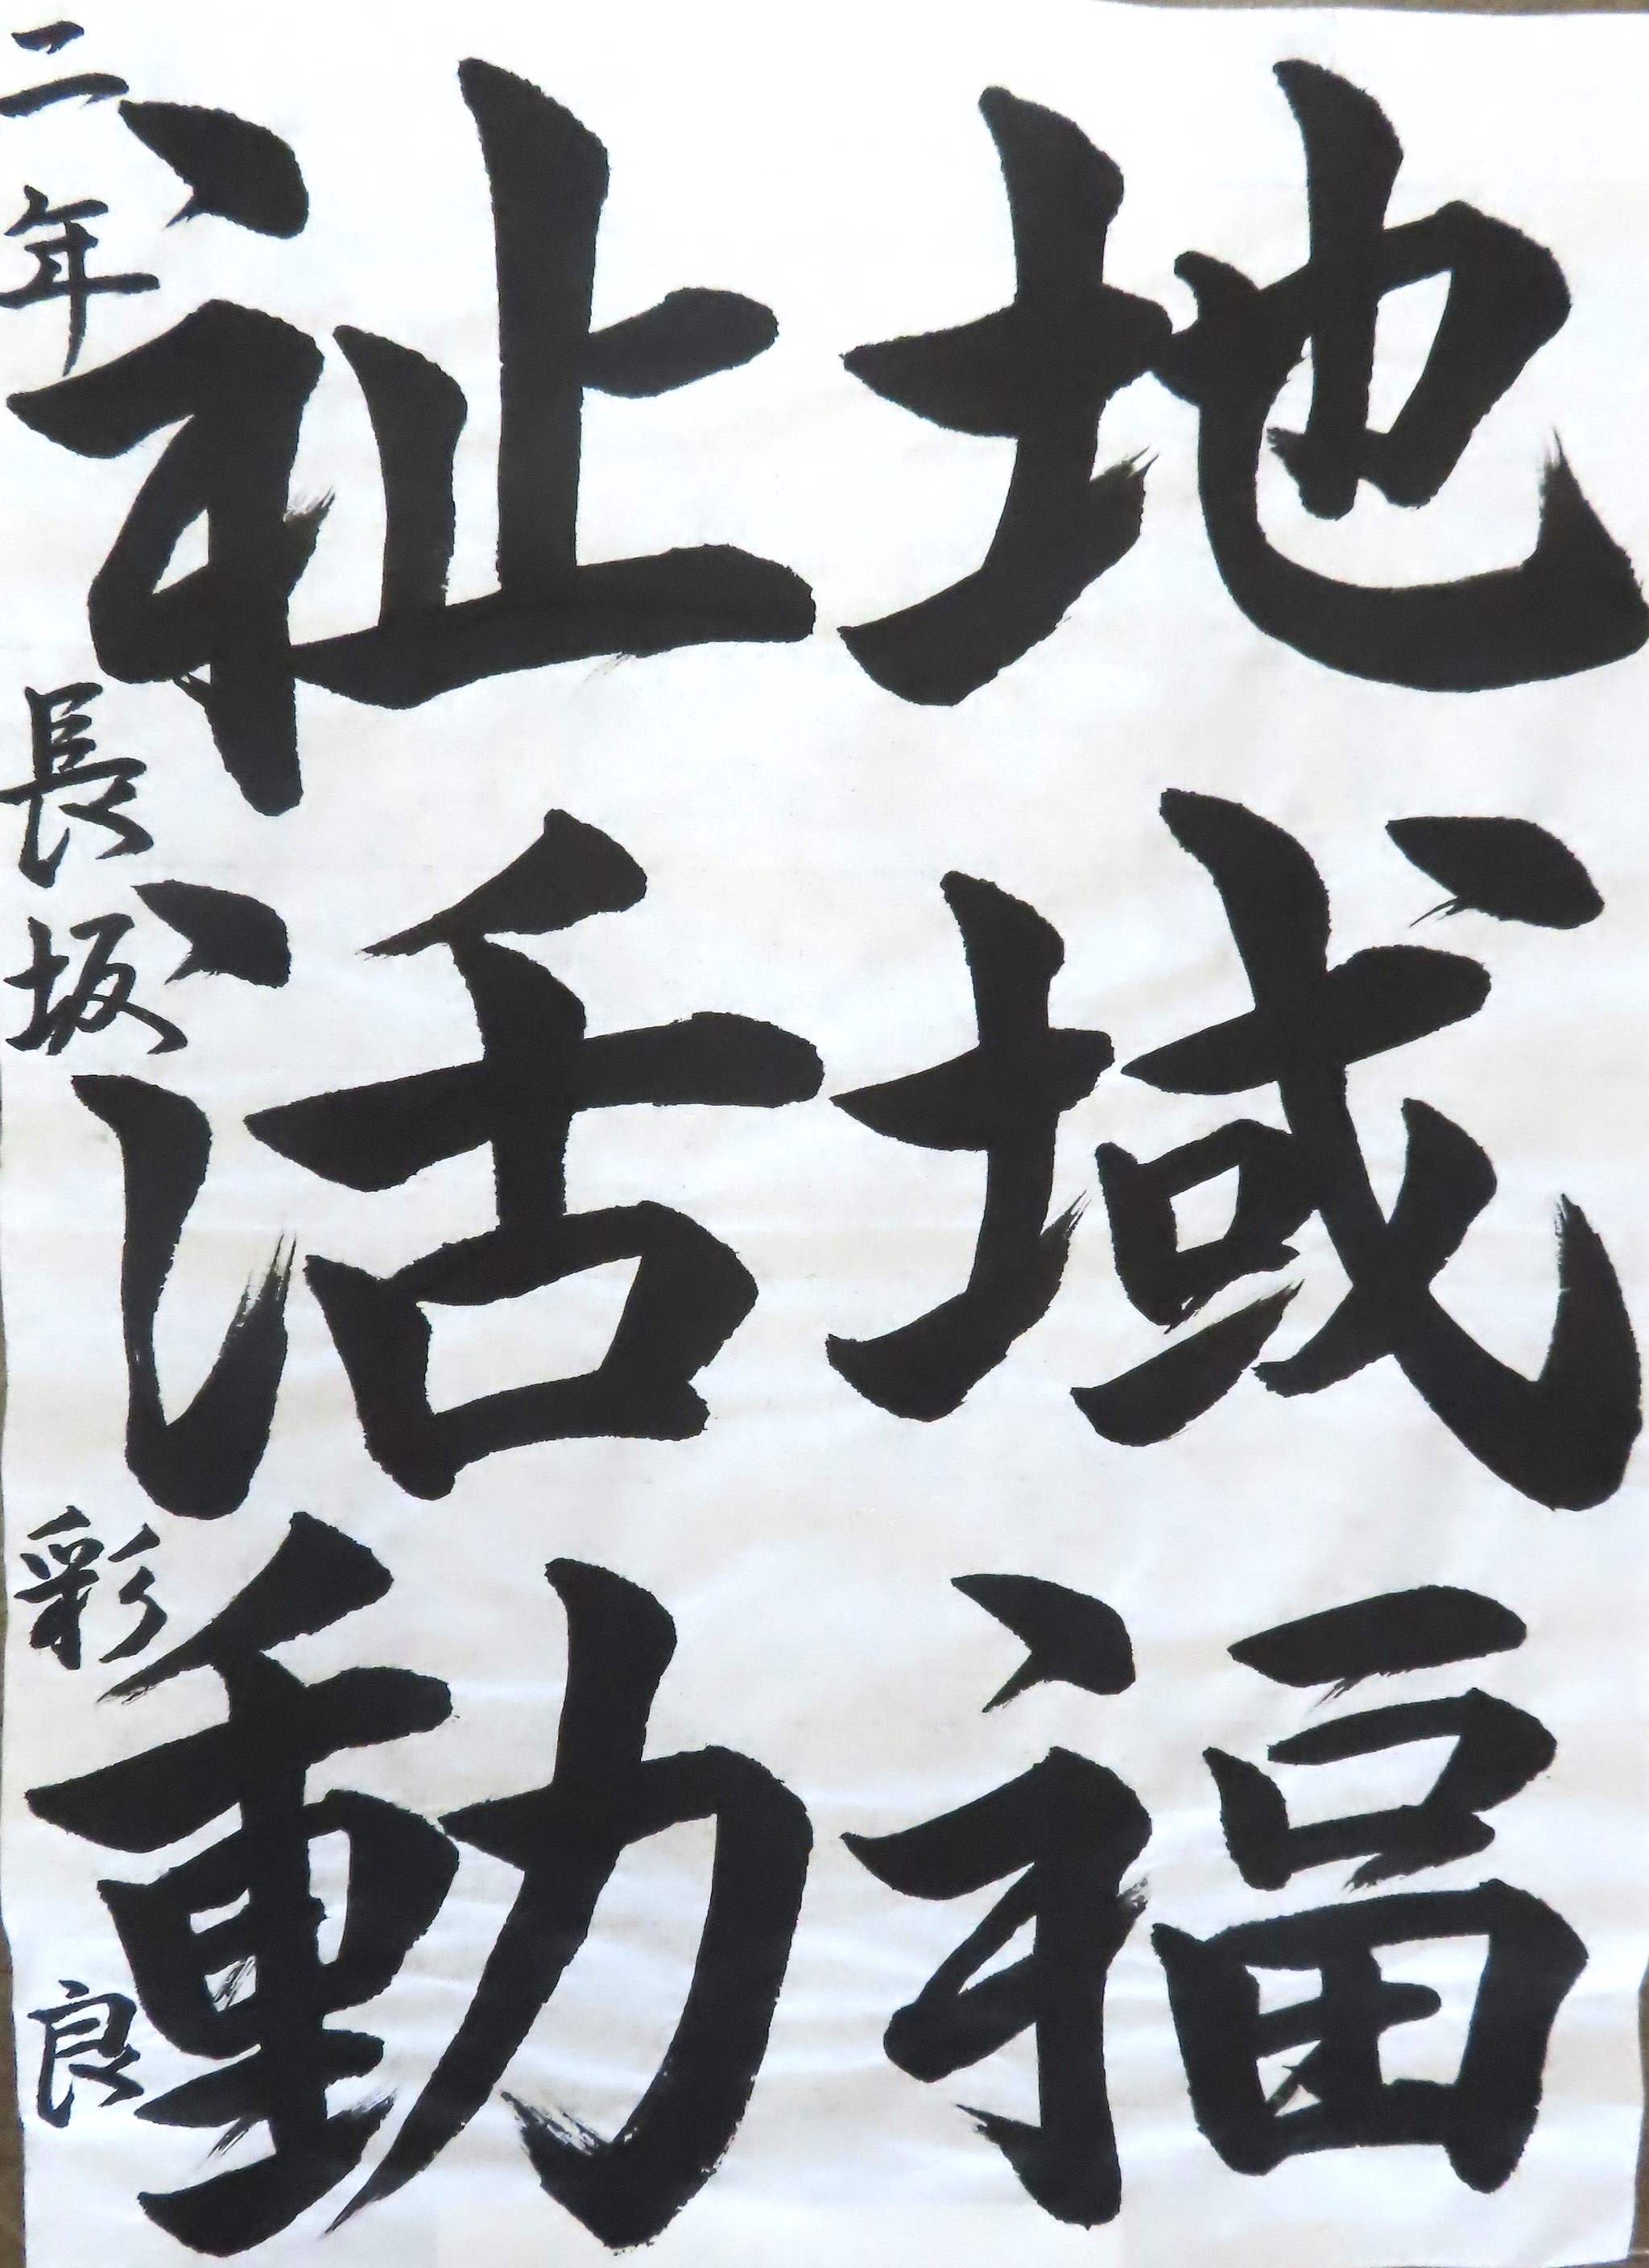 地域福
祉活動
二年 長坂 彩良